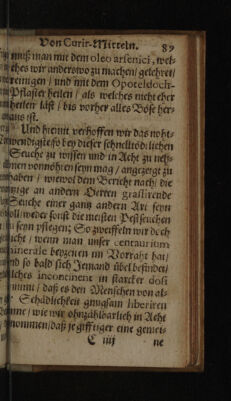 Von Curir-Mitteln. 89
muß man mit dem oleo arsenici, wel-
ches wir anderswo zu machen/ gelehret/
reinigen / und mit dem Opoteldoch-
Pflaster heilen/ als welches nicht eher
heilen läst / bis vorher alles Böse her-
aus ist.
Und hiemit verhoffen wir das noht-
wendigste/so bey dieser schnelltödlichen
Seuche zu wissen und in Acht zu neh-
men vonnöhten seyn mag / angezeigt zu
haben / wiewol dem Bericht nach/ die
itzige an andern Oerten grassirende
Seuche einer gantz andern Art seyn
soll/ weder sonst die meisten Pestseuchen
zu seyn pflegen; So zweiffeln wir doch
nicht / wenn man unser centaurium
minerale bezeiten im Vorraht hat/
und so bald sich Jemand übel befindet/
solches incontinent in starcker dosi
nimmt / daß es den Menschen von al-
ler Schädlichkeit gnugsam liberiren
könne / wie wir ohnzählbarlich in Acht
genommen/daß je gifftiger eine gemei-
C iiij ne